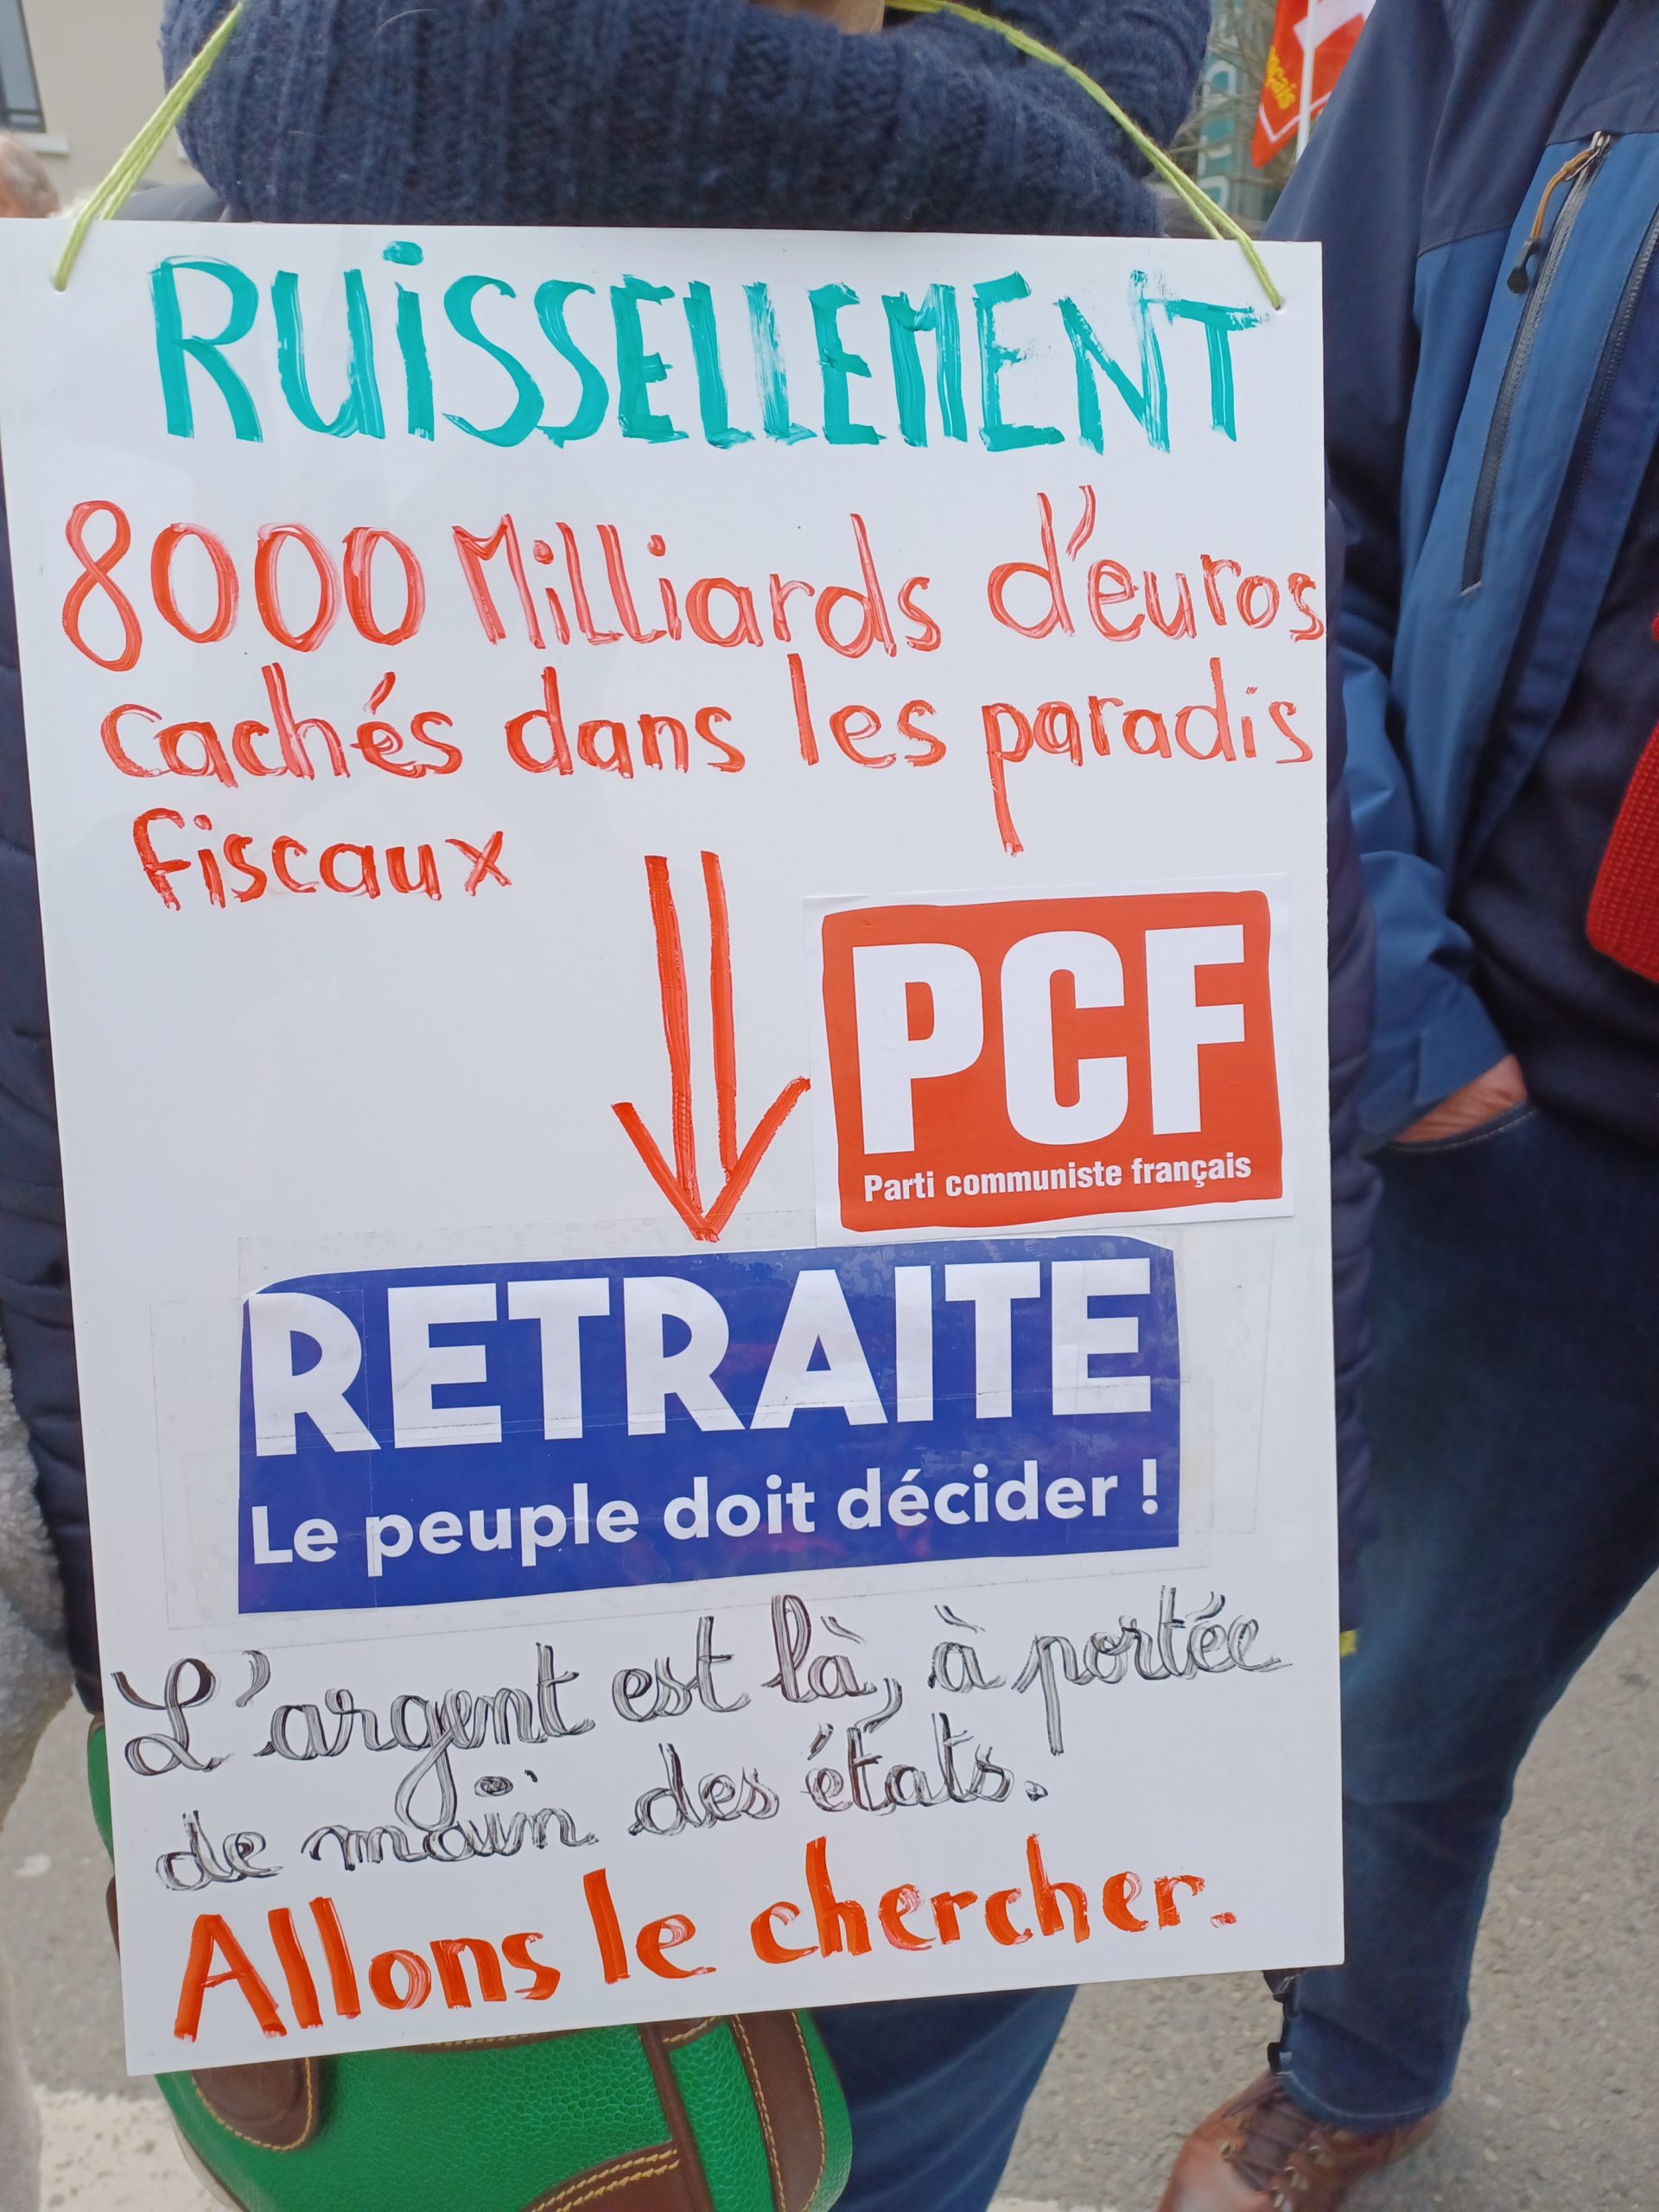 RUISSELLEMENT
8000 Milliards d'euros
cachés dans les paradis
fiscaux
PCF
Parti communiste français
RETRAITE
Le peuple doit décider !
L'argent est là, à portée
de main des états.
Allons le chercher.